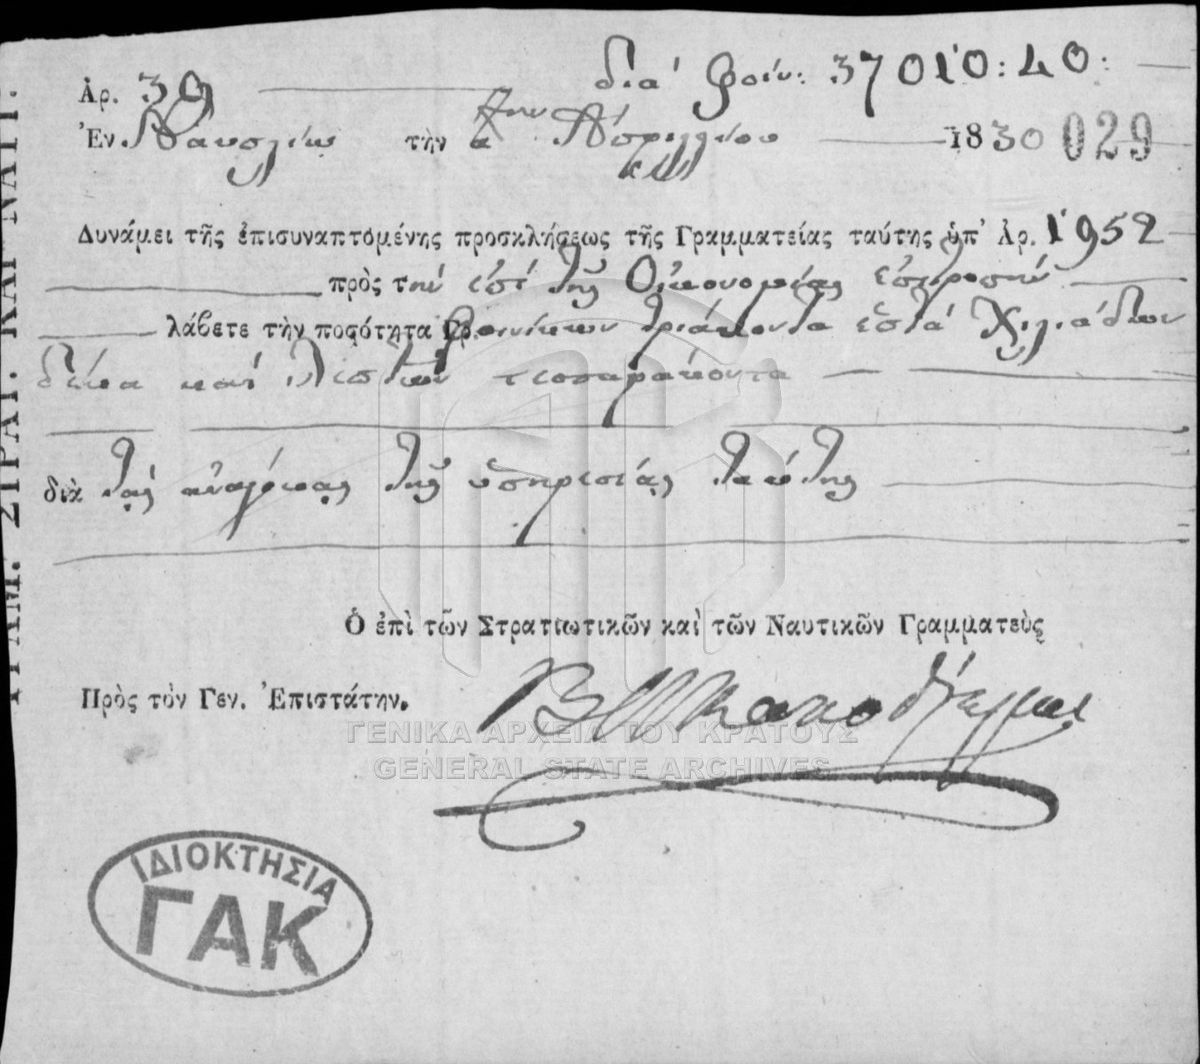 Ἀρ. 39 διά φοίν: 37010:40:
Ἐν Ναυπλίῳ τὴν α Ἀπριλλίου 1830 029
Δυνάμει τῆς ἐπισυναπτομένης προσκλήσεως τῆς Γραμματείας ταύτης ὑπ' Ἀρ. 1952
πρὸς τὴν ἐπί τῆς Οἰκονομίας ἐπιτροπήν
λάβετε τὴν ποσότητα Γρ. φοινίκων τριάκοντα ἑπτά χιλιάδων
δέκα καί λεπτῶν τεσσαράκοντα
διὰ τάς ἀνάγκας τῆς ὑπηρεσίας ταύτης
Ὁ ἐπὶ τῶν Στρατιωτικῶν καὶ τῶν Ναυτικῶν Γραμματεὺς
Πρὸς τὸν Γεν. Ἐπιστάτην.
ΓΕΝΙΚΑ ΑΡΧΕΙΑ ΤΟΥ ΚΡΑΤΟΥΣ
GENERAL STATE ARCHIVES
ΙΔΙΟΚΤΗΣΙΑ
ΓΑΚ
ΓΡΑΜ. ΣΤΡΑΤ. ΚΑΙ ΝΑΥΤ.